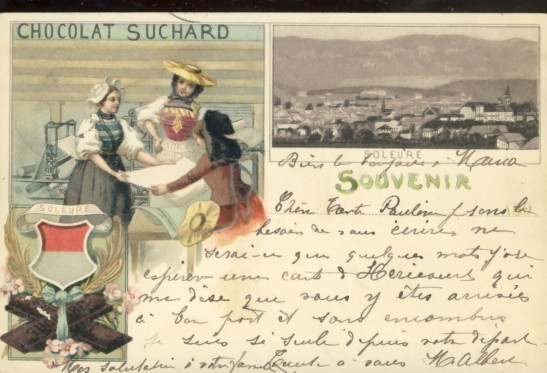 CHOCOLAT SUCHARD
SOLEURE
SOUVENIR
SOLEURE
Chère Tante Pauline je sens le
besoin de vous écrire ne
serai-ce que quelques mots j'ose
espérer une carte d'Héricourt qui
me dise que vous y êtes arrivés
à bon port et sans encombres
je suis si seule depuis votre départ
Mes salutations à votre famille
à vous M Albert